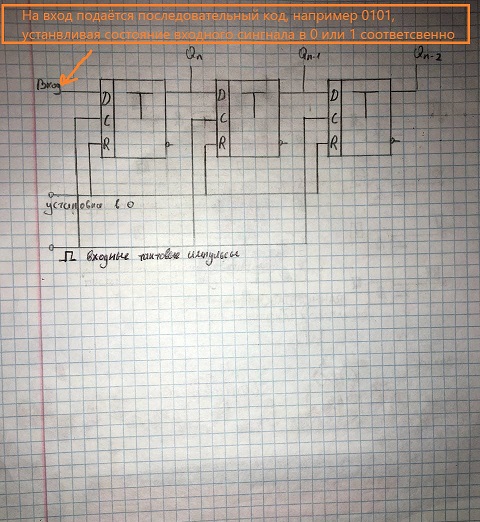 На вход подаётся последовательный код, например 0101,
устанвливая состояние входного сингнала в 0 или 1 соответсвенно
Qn Qn-1 Qn-2
Вход
D T D T D T
C C C
R R R
установка в 0
входные тактовые импульсы